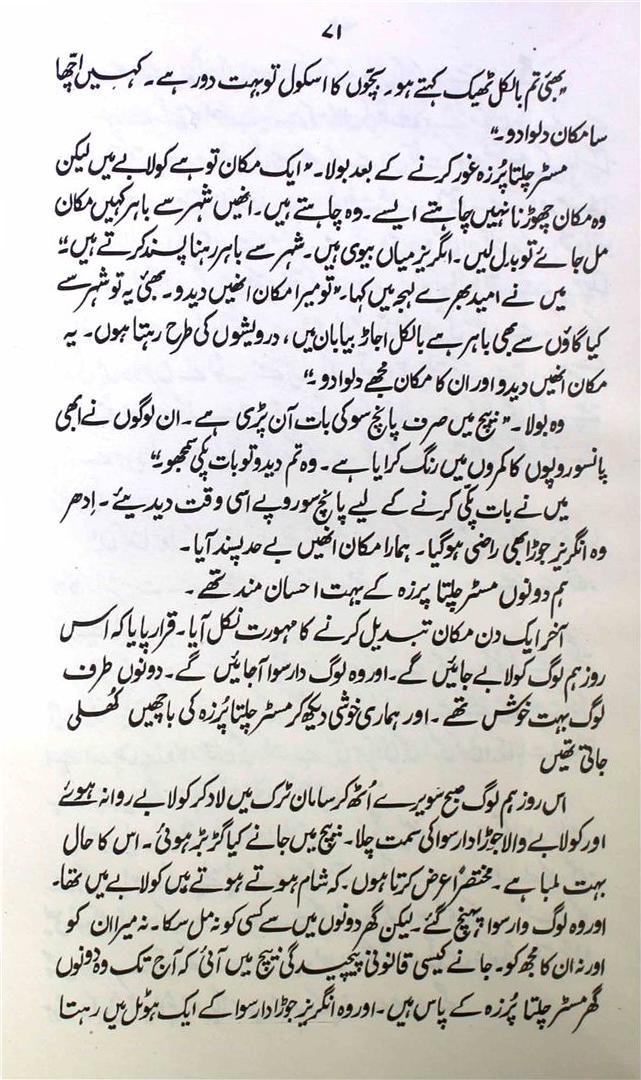 ۷۱
”بھئی تم بالکل ٹھیک کہتے ہو۔ بچّوں کا اسکول تو بہت دور ہے۔ کہیں اچّھا
سا مکان دلوا دو۔“
مسٹر چلتا پُرزہ غور کرنے کے بعد بولا۔ ”ایک مکان تو ہے کولابے میں لیکن
وہ مکان چھوڑنا نہیں چاہتے ایسے۔ وہ چاہتے ہیں۔ انھیں شہر سے باہر کہیں مکان
مل جائے تو بدل لیں۔ انگریز میاں بیوی ہیں۔ شہر سے باہر رہنا پسند کرتے ہیں۔“
میں نے امید بھرے لہجہ میں کہا۔ ”تو میرا مکان انھیں دیدو۔ بھئی یہ تو شہر سے
کیا گاؤں سے بھی باہر ہے بالکل اجاڑ بیابان ہیں، درویشوں کی طرح رہتا ہوں۔ یہ
مکان انھیں دیدو اور ان کا مکان مجھے دلوا دو۔“
وہ بولا۔ ”بیچ میں صرف پانچ سو کی بات آن پڑی ہے۔ ان لوگوں نے ابھی
پانسو روپوں کا کمروں میں رنگ کرایا ہے۔ وہ تم دیدو تو بات پکی سمجھو۔“
میں نے بات پکّی کرنے کے لیے پانچ سو روپے اسی وقت دیدیئے۔ اِدھر
وہ انگریز جوڑا بھی راضی ہوگیا۔ ہمارا مکان انھیں بے حد پسند آیا۔
ہم دونوں مسٹر چلتا پرزہ کے بہت احسان مند تھے۔
آخر ایک دن مکان تبدیل کرنے کا مہورت نکل آیا۔ قرار پایا کہ اس
روز ہم لوگ کولابے جائیں گے۔ اور وہ لوگ دارسوا آجائیں گے۔ دونوں طرف
لوگ بہت خوش تھے۔ اور ہماری خوشی دیکھ کر مسٹر چلتا پُرزہ کی باچھیں کُھلی
جاتی تھیں
اس روز ہم لوگ صبح سویرے اُٹھ کر سامان ٹرک میں لاد کر کولابے روانہ ہوئے
اور کولابے والا جوڑا دارسوا کی سمت چلا۔ بیچ میں جانے کیا گڑبڑ ہوئی۔ اس کا حال
بہت لمبا ہے۔ مختصراً عرض کرتا ہوں۔ کہ شام ہوتے ہوتے میں کولابے میں تھا۔
اور وہ لوگ وارسوا پہنچ گئے۔ لیکن گھر دونوں میں سے کسی کو نہ مل سکا۔ نہ میرا ان کو
اور نہ ان کا مجھ کو۔ جانے کیسی قانونی پیچیدگی بیچ میں آئی کہ آج تک وہ دونوں
گھر مسٹر چلتا پُرزہ کے پاس ہیں۔ اور وہ انگریز جوڑا دارسوا کے ایک ہوٹل میں رہتا